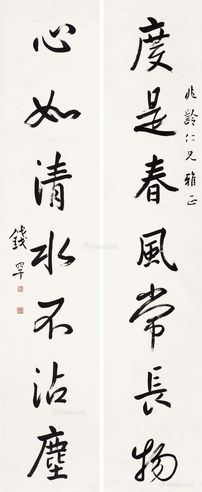 兆齡仁兄雅正
度是春風常長物
心如清水不沾塵
錢罕